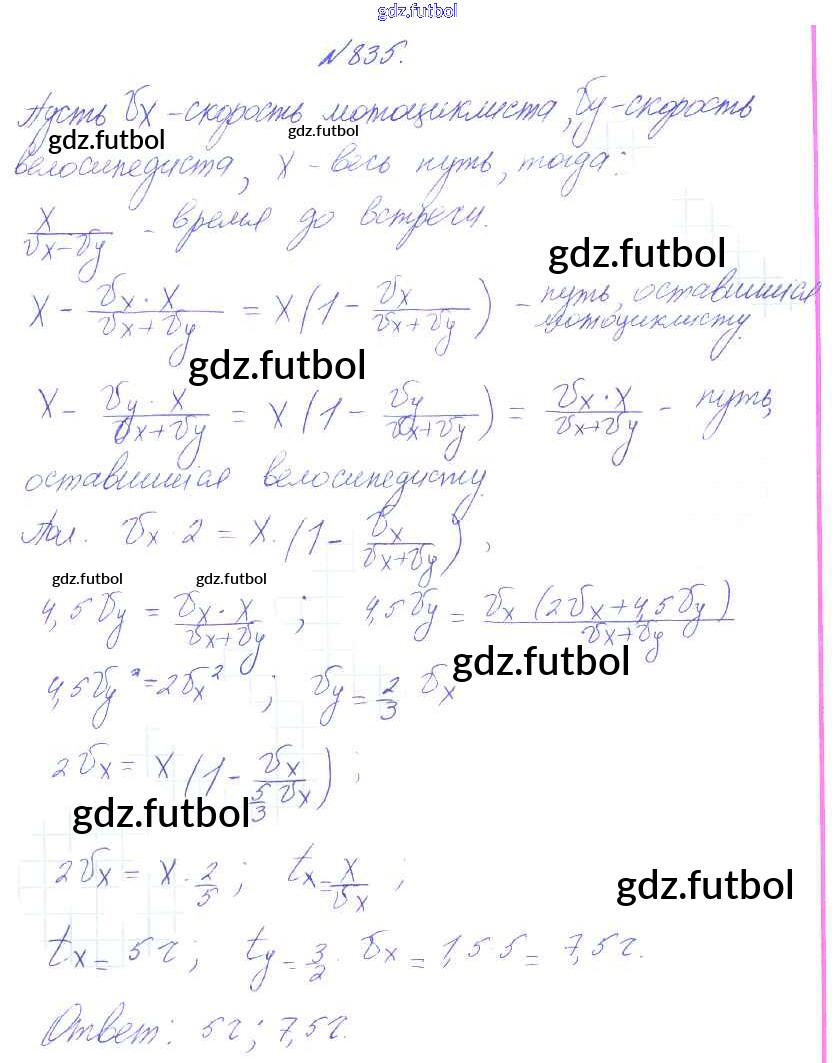 gdz.futbol
№835.
Пусть Vx - скорость мотоциклиста, Vy - скорость
gdz.futbol
gdz.futbol
велосипедиста, x - весь путь, тогда:
x/(Vx-Vy) - время до встречи.
gdz.futbol
x - (Vx·x)/(Vx+Vy) = x(1 - Vx/(Vx+Vy)) - путь, оставшийся мотоциклисту.
gdz.futbol
x - (Vy·x)/(Vx+Vy) = x(1 - Vy/(Vx+Vy)) = (Vx·x)/(Vx+Vy) - путь,
оставшийся велосипедисту
Vx·2 = x·(1 - Vx/(Vx+Vy)),
gdz.futbol
gdz.futbol
4,5Vy = (Vx·x)/(Vx+Vy); 4,5Vy = Vx(2Vx+4,5Vy)/(Vx+Vy)
gdz.futbol
4,5Vy² = 2Vx²; Vy = 2/3 Vx
2Vx = x(1 - Vx/(5/3 Vx));
gdz.futbol
2Vx = x·2/5; tx = x/Vx;
gdz.futbol
tx = 5г; ty = 3/2·Vx = 1,5·5 = 7,5г.
Ответ: 5г; 7,5г.